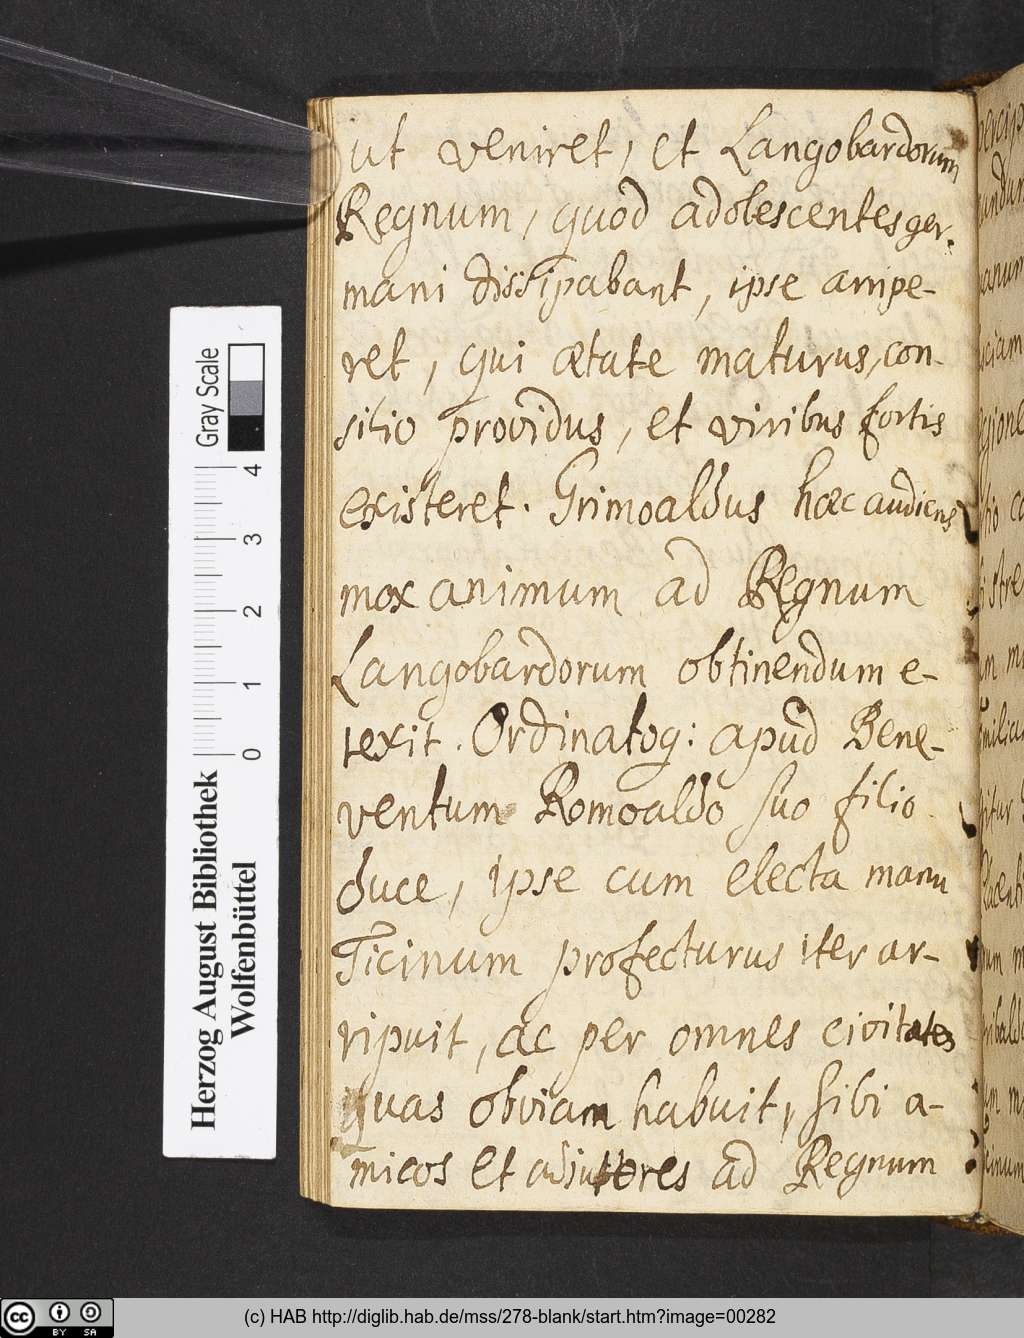 ut veniret, et Langobardorum
Regnum, quod adolescentes ger-
mani dissipabant, ipse arripe-
ret, qui ætate maturus, con-
silio providus, et viribus fortis
existeret. Grimoaldus hæc audiens
mox animum ad Regnum
Langobardorum obtinendum e-
rexit. Ordinatoq: apud Bene-
ventum Romoaldo suo filio
duce, ipse cum electa manu
Ticinum profecturus iter ar-
ripuit, ac per omnes civitates
quas obviam habuit, sibi a-
micos et adjutores ad Regnum
Gray Scale
4
3
2
1
0
Herzog August Bibliothek
Wolfenbüttel
cc BY SA
(c) HAB http://diglib.hab.de/mss/278-blank/start.htm?image=00282